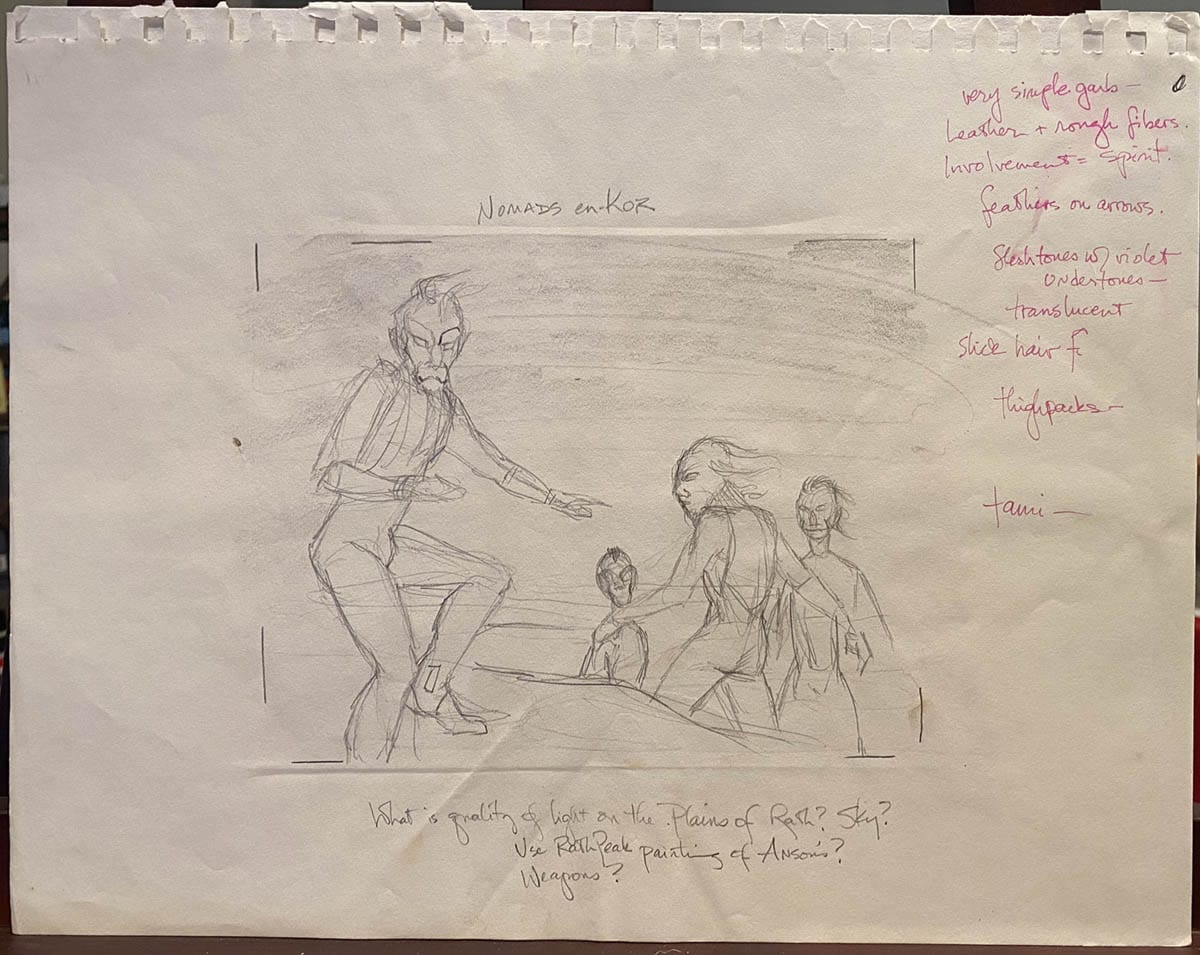 very simple garb —
Leather + rough fibers.
Involvement = spirit.
feathers on arrows.
fleshtones w/ violet
undertones —
translucent
slick hair
thighpacks —
tami —
NOMADS en-KOR
What is quality of light on the Plains of Rath? Sky?
Use Rath Peak painting of Anson's?
Weapons?